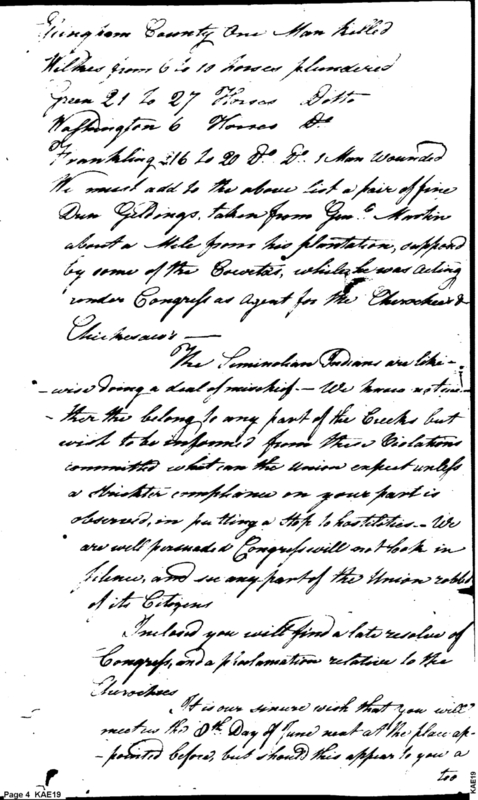 Effingham County One Man killed
Wilkes from 6 to 10 horses plundered
Green 21 to 27 Horses Ditto
Washington 6 Horses Do
Frankling 16 to 20 Do Do 1 Man wounded
We must add to the above list a pair of fine
Dun Geldings, taken from Genl Martin
about a Mile from his plantation, supposd
by some of the Cowetas, while he was acting
under Congress as Agent for the Cherockees &
Chickesaws —
The Siminolian Indians are like-
-wise doing a deal of mischief — We know not whe-
-ther the belong to any part of the Creeks but
wish to be informed from these Violations
committed what can the Union expect unless
a strickter compliance on your part is
observed, in putting a stop to hostilities — We
are well persuaded Congress will not look in
silence, and see any part of the Union robbd
of its Citizens
Inclosed you will find a late resolve of
Congress, and a proclamation relative to the
Cherockees
It is our sincere wish that you will
meet us the 8th Day of June next at the place ap-
-pointed before, but should this appear to you a
too
Page 4 KAE19
KAE19